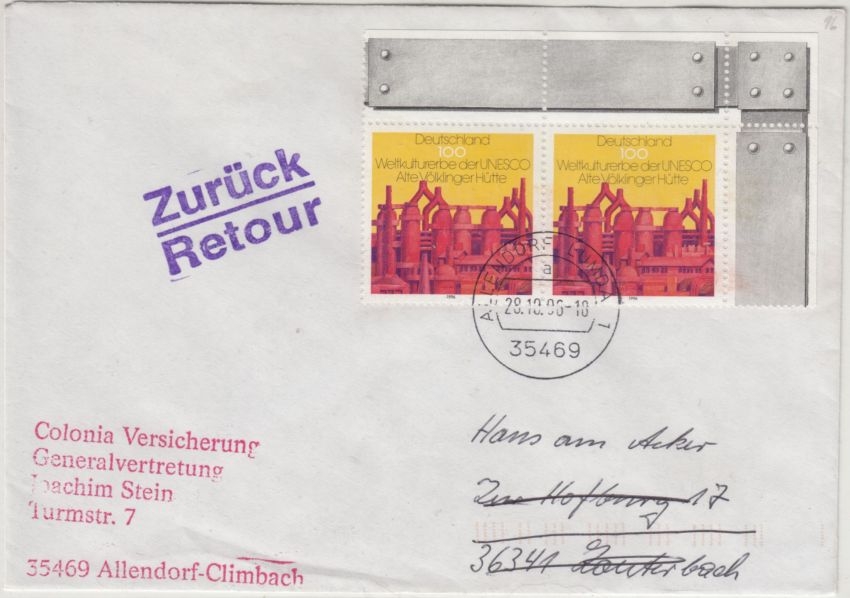 96
Deutschland
100
Weltkulturerbe der UNESCO
Alte Völklinger Hütte
1996
Deutschland
100
Weltkulturerbe der UNESCO
Alte Völklinger Hütte
1996
Zurück
Retour
ALLENDORF LUMDA 1
a
28.10.96-18
35469
Colonia Versicherung
Generalvertretung
Joachim Stein
Turmstr. 7
35469 Allendorf-Climbach
Hans am Acker
Zur Hofburg 17
36341 Lauterbach